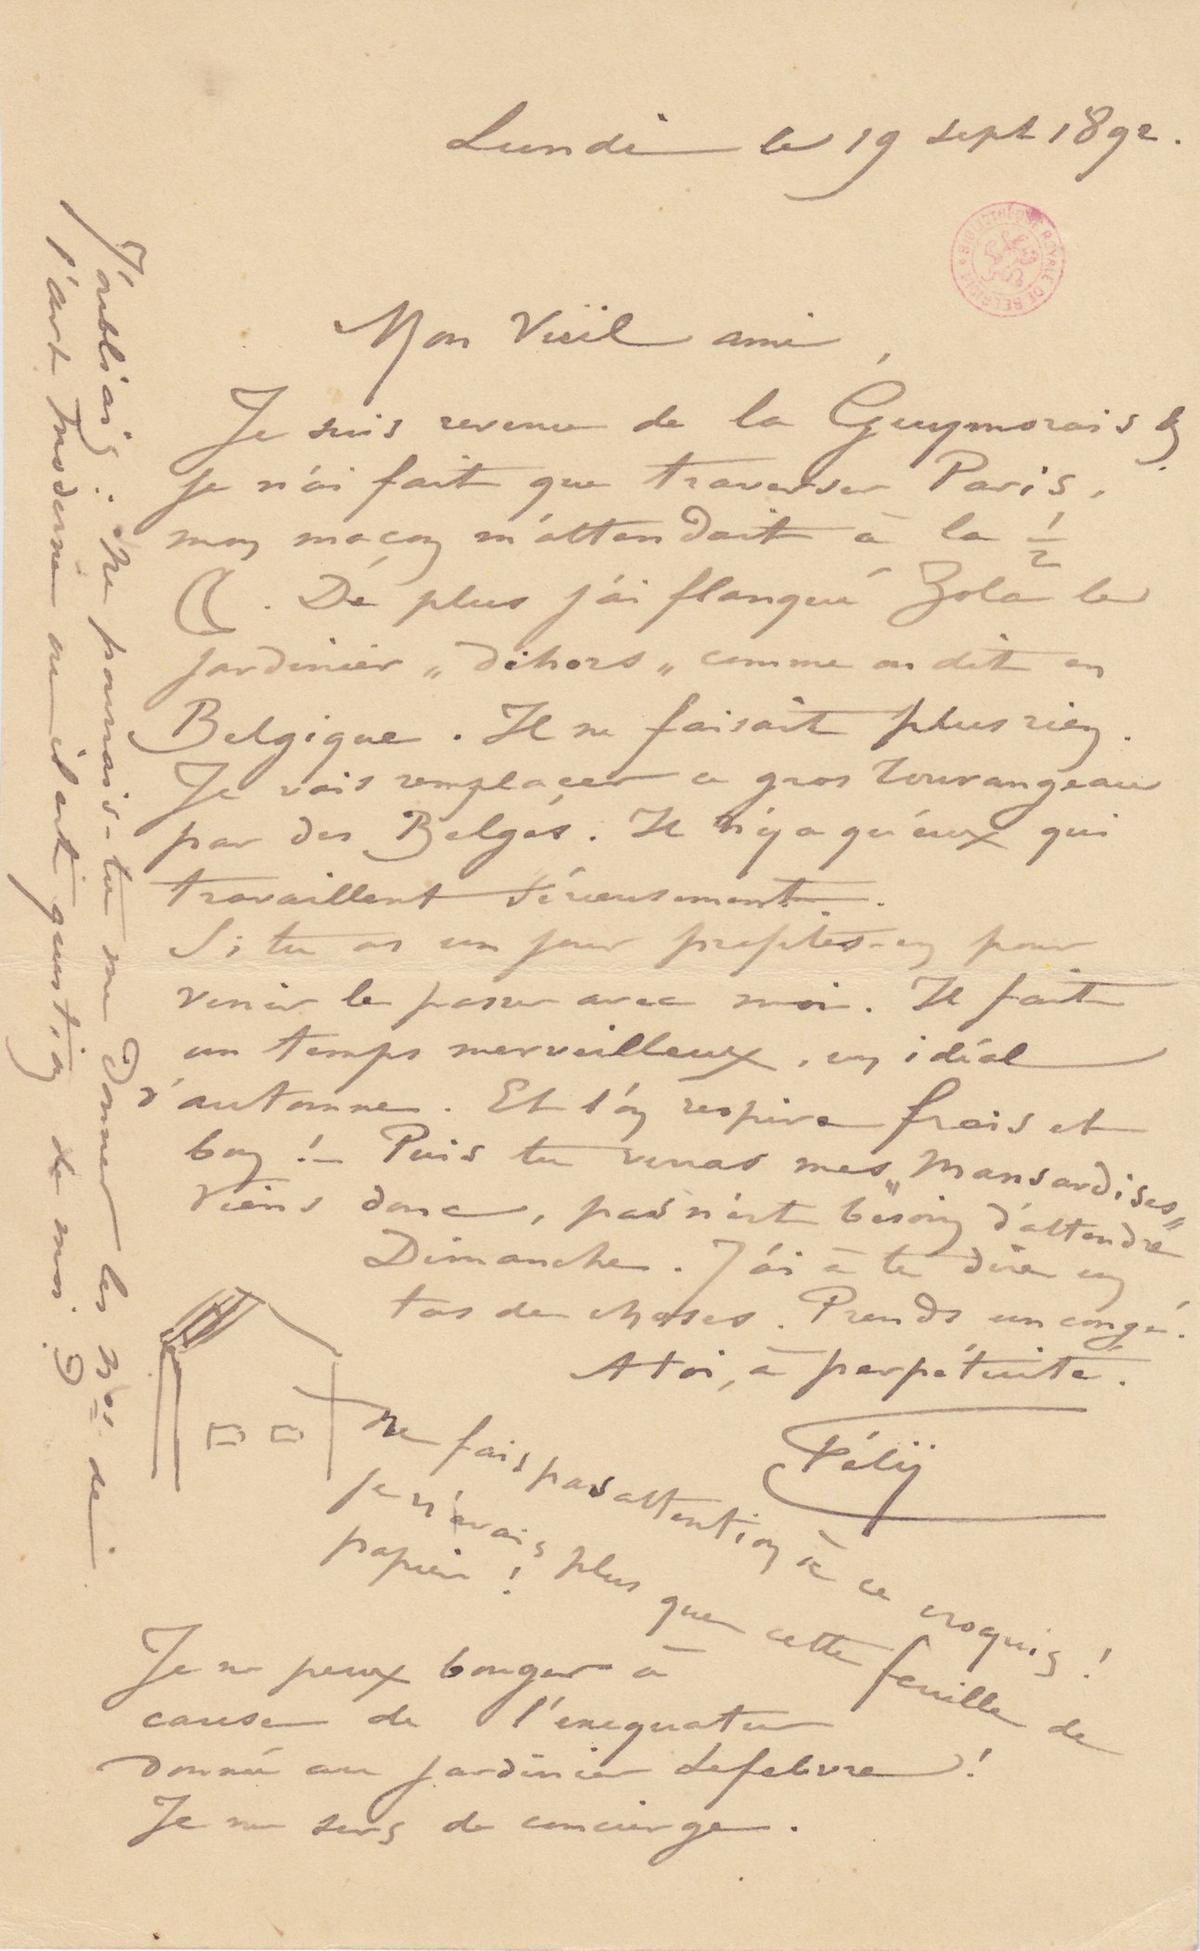 Lundi le 19 sept 1892.
BIBLIOTHÈQUE ROYALE DE BELGIQUE
Mon Vieil ami,
Je suis revenu de la Guymorais &
je n'ai fait que traverser Paris,
mon maçon m'attendait à la ½
Lune. De plus j'ai flanqué Zola le
jardinier „dihors„ comme on dit en
Belgique. Il ne faisait plus rien.
Je vais remplacer ce gros tourangeau
par des Belges. Il n'y a qu'eux qui
travaillent sérieusement.
Si tu as un jour profites-en pour
venir le passer avec moi. Il fait
un temps merveilleux, un idéal
d'automne. Et l'on respire frais et
bon !– Puis tu verras mes „Mansardises„
Viens donc, pas n'est besoin d'attendre
Dimanche. J'ai à te dire un
tas de choses. Prends un congé.
A toi, à perpétuité.
Fély
ne fais pas attention à ce croquis !
je n'avais plus que cette feuille de
papier !
Je ne peux bouger à
cause de l'exequatur
donné au jardinier Lefebvre !
Je me sers de concierge.
J'oubliais : Ne pourrais-tu me donner les Nos de
l'art moderne où il est question de moi ?